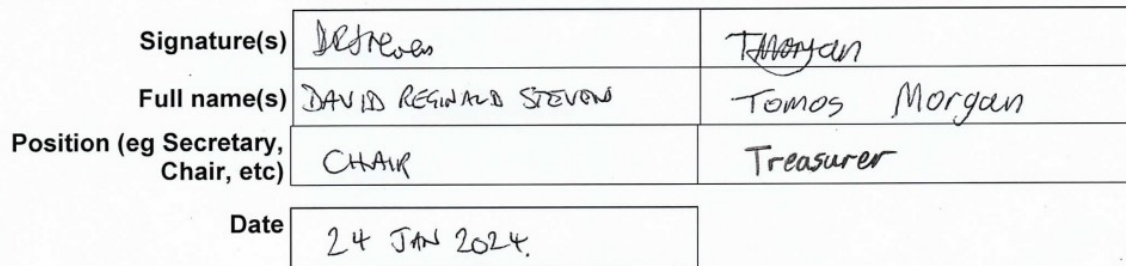 Signature(s) DRStevens TMorgan
Full name(s) DAVID REGINALD STEVENS Tomos Morgan
Position (eg Secretary, CHAIR Treasurer
Chair, etc)
Date 24 JAN 2024.